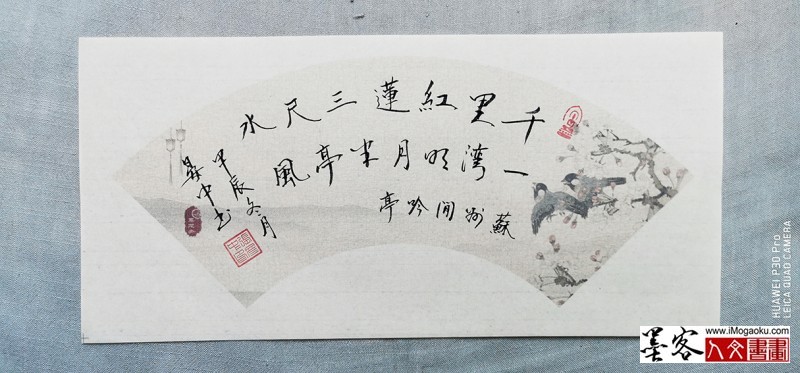 千里紅蓮三尺水
一灣明月半亭風
蘇州閒吟亭
甲辰冬月
中书
HUAWEI P30 Pro
LEICA QUAD CAMERA
www.iMogaoku.com
墨客
人文書畫